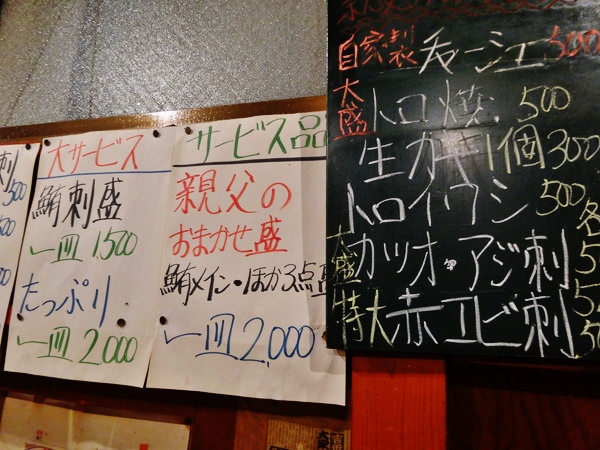 刺
500
大サービス
鮪刺盛
一皿 1,500
たっぷり
一皿 2,000
サービス品
親父の
おまかせ盛
鮪メイン・ほか3点盛
一皿 2,000
自家製 チャーシュー 500
大盛 トロ焼 500
生カキ 1個 300
トロイワシ 500
大盛 カツオ・アジ刺 各5
特大 赤エビ刺 5